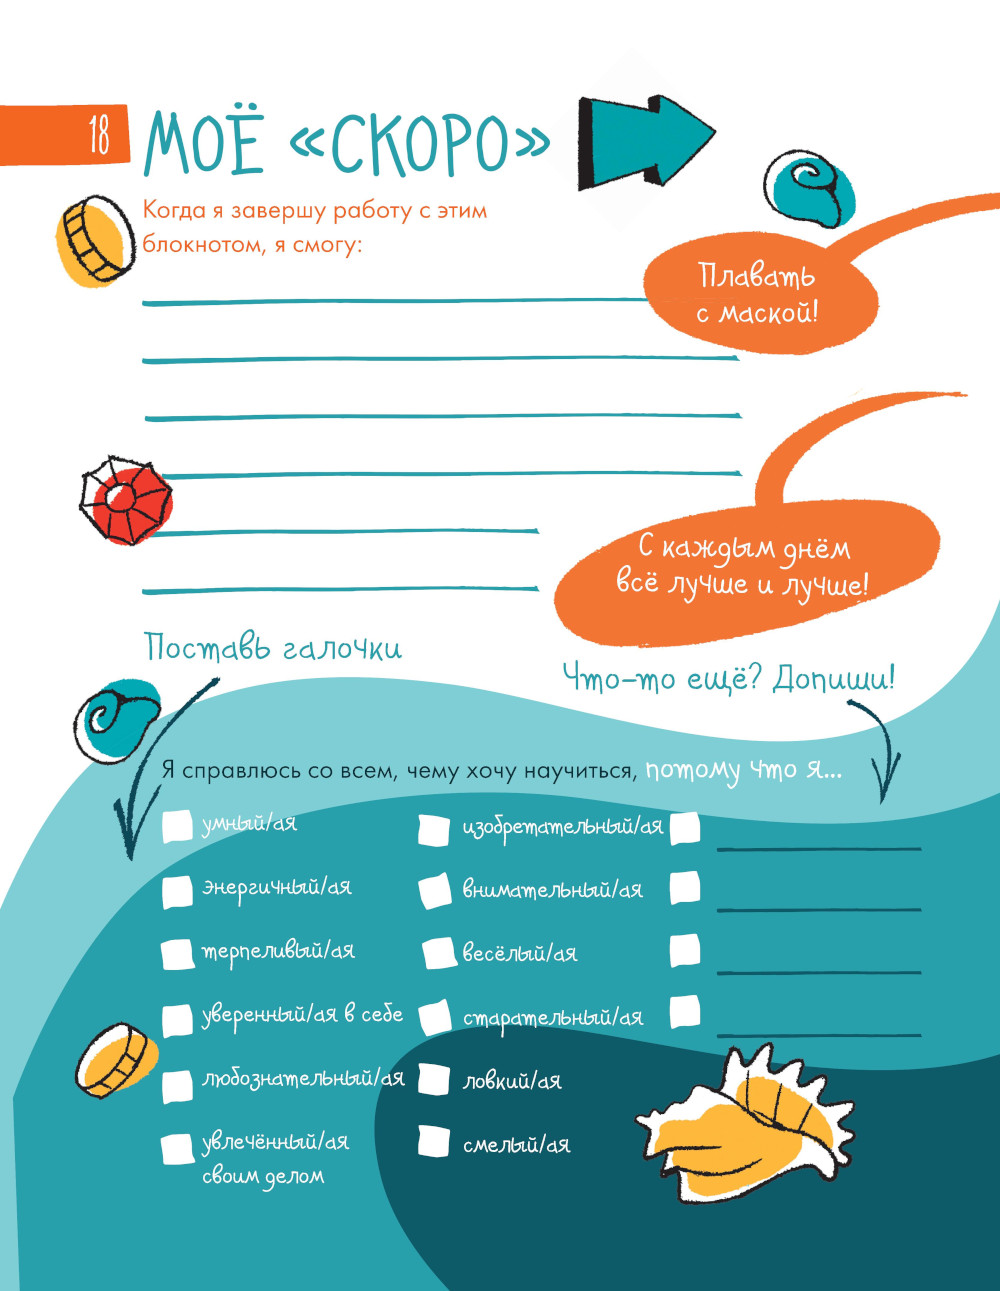 18
МОЁ «СКОРО»
Когда я завершу работу с этим
блокнотом, я смогу:
Плавать
с маской!
С каждым днём
всё лучше и лучше!
Поставь галочки
Что-то ещё? Допиши!
Я справлюсь со всем, чему хочу научиться, потому что я...
умный/ая
энергичный/ая
терпеливый/ая
уверенный/ая в себе
любознательный/ая
увлечённый/ая
своим делом
изобретательный/ая
внимательный/ая
весёлый/ая
старательный/ая
ловкий/ая
смелый/ая